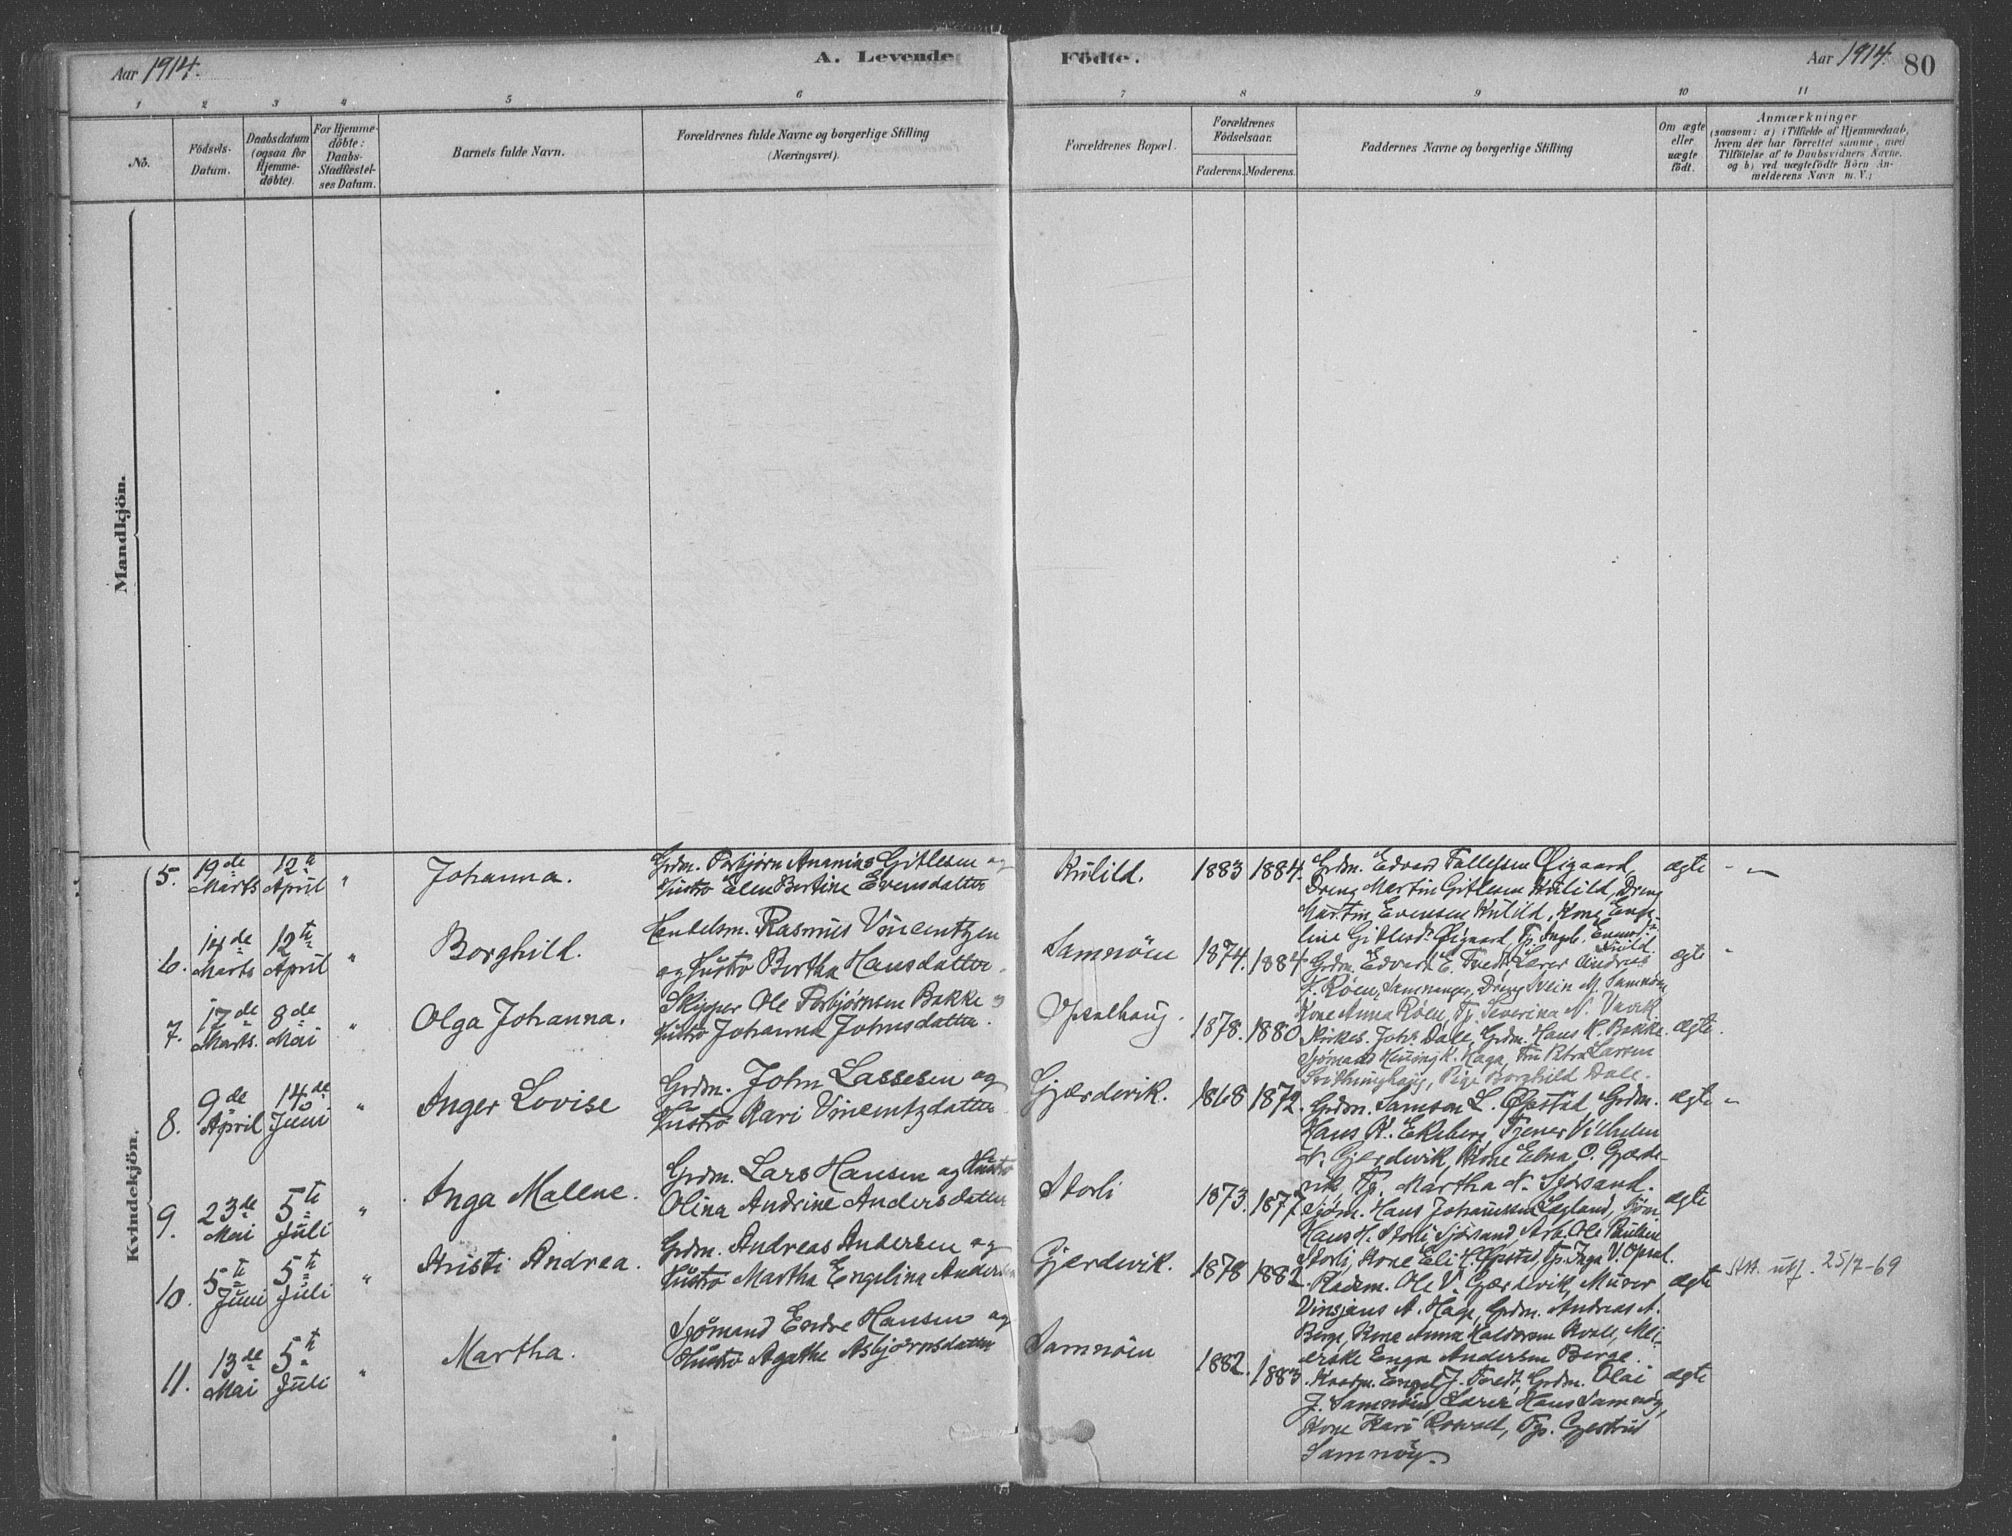 Aar 1914.
A. Levende
Födte.
Aar 1914.
80
1 2 3 4 5 6 7 8 9 10 11
No.
Födsels-
Datum.
Daabsdatum
(ogsaa for
Hjemme-
döbte).
For Hjemme-
döbte:
Daabs-
Stadfæstel-
ses Datum.
Barnets fulde Navn.
Forældrenes fulde Navne og borgerlige Stilling
(Næringsvei).
Forældrenes Bopæl.
Forældrenes
Födselsaar.
Faderens.
Moderens.
Faddernes Navne og borgerlige Stilling
Om ægte
eller
uægte
födt.
Anmærkninger
(saasom: a) i Tilfælde af Hjemmedaab,
hvem der har forrettet samme, med
Tilföielse af to Daabsvidners Navne.
og b) ved uægtefödte Börn An-
melderens Navn m. V.;
Mandkjön.
Kvindekjön.
5. 19de Marts 12te April " Johanna.
Grdm. Torbjørn Ananias Gitlesen og
Hustro Elen Bertine Evensdatter
Kulild. 1883 1884.
Grdm. Edvard Øigaard,
Dreng Martin Gitlesen Kulild, Dreng
Martin Evensen Kulild, Kone Enge-
line Gitlesd. Øigaard,
Kulild
ægte
6. 14de Marts 12te April " Borghild.
Rasmus Vincentzen
og Hustro Bertha Hansdatter
Samnöen 1874. 1884
Grdm. Edvard E. Tvedt, Lærer Andreas
J. Røen, Samnanger, Dreng Svein M. Samnöen
Kone Anna Røen, Tj. Severina N. Vavik
ægte
7. 17de Marts. 8de Mai " Olga Johanna.
Skipper Ole Torbjørnsen Bakke og
Hustro Johanna Johnsdatter.
Opsalhaug. 1878. 1880
Johs Dale, Grdm. Hans K. Bakke.
Sjømand Henning K. Haga, Fru Petra Larsen
Pige Borghild Dale.
ægte.
8. 9de April 14de Juni " Anger Lovise
Grdm. John Lassesen og
Hustro Kari Vincentzdatter
Gjærdevik. 1868 1872.
Grdm. Samson L. Opstad, Grdm.
Hans R. Ekeberg, Tjener Vilhelm
N. Gjerdevik, Kone Elna O. Gjærde-
vik Tj. Martha N. Sjøsand.
ægte
9. 23de Mai 5te Juli " Inga Malene.
Grdm. Lars Hansen og Hustro
Olina Andrine Andersdatter
Storli 1873. 1877
Sjöm. Hans Johannesen Legland, Sjöm
Hans H. Storli Sjøsand, Arb. Ole Paulsen
Storli, Kone Eli H. Opstad, Tj. Inga V. Opsal.
ægte
10. 5te Juni 5te Juli " Kristi Andrea.
Grdm. Andreas Andersen og
Hustro Martha Engelina
Gjærdevik. 1878 1882.
Ole V. Gjærdevik, Murer
Vinsjans A. Haga, Grdm. Andreas A.
Berge, Kone Anna Kvale, Mei-
erske Enga Andersen Berge.
ægte utf. 25/7-69
11. 13de Mai 5te Juli " Martha.
Sjömand Endre Hansen og
Hustro Agathe Asbjørnsdatter
Samnöen 1882. 1883
Engel J. Tvedt, Grdm. Olai
J. Samnöen, Lærer Hans Samnöy,
Kone Kari Tjp. Gjertrud
Samnöy.
ægte